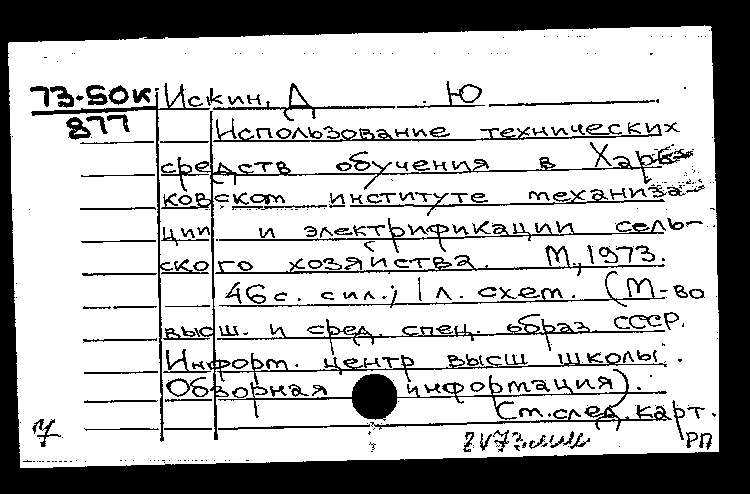 73-50к Искин, Д . Ю
877
Использование технических
средств обучения в Харь-
ковском институте механиза-
ции и электрификации сель-
ского хозяйства. М, 1973.
46 с. с ил.; 1 л. схем. (М-во
высш. и сред. спец. образ. СССР.
Информ. центр высш школы.
Обзорная информация).
См. след. карт.
7
РП